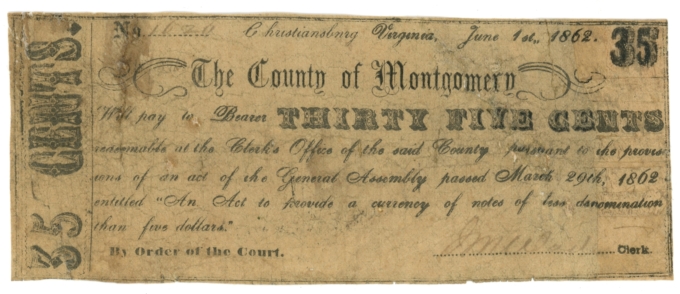 No.
Christiansburg Virginia, June 1st., 1862.
35
The County of Montgomery
Will pay to Bearer THIRTY FIVE CENTS
reseemable at the Clerk's Office of the said County pursuant to the provis
ions of an act of the General Assembly passed March 29th, 1862
entitled "An Act to provide a currency of notes of less denomination
than five dollars."
By Order of the Court.
Clerk.
35 CENTS.